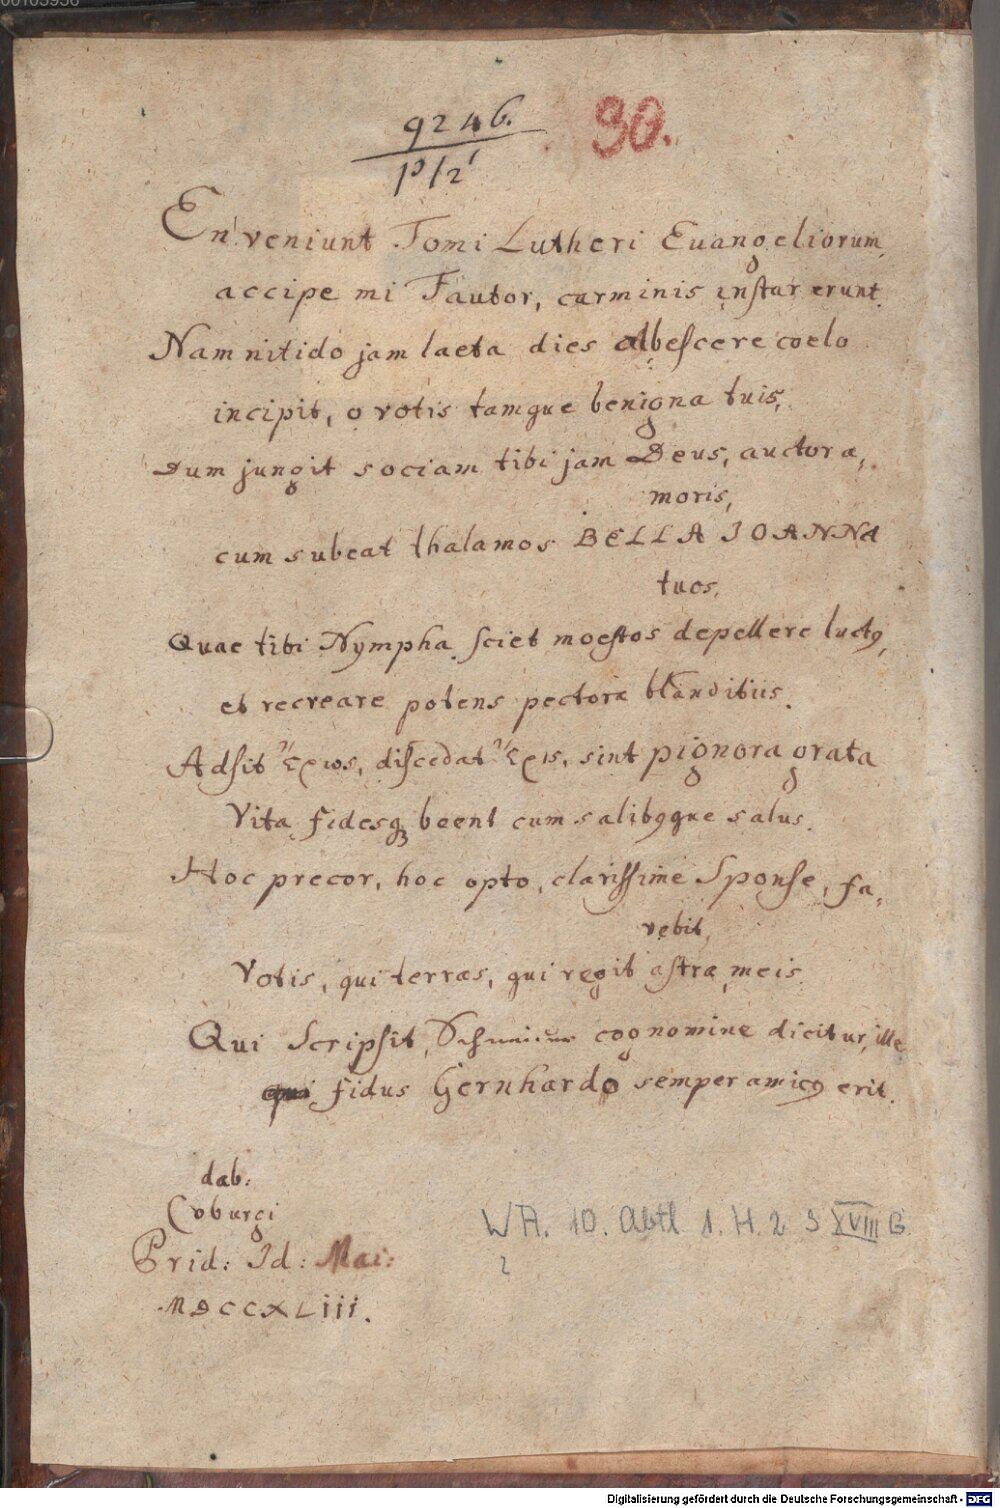 00105956
9246.
P/2'
90.
En veniunt Tomi Lutheri Euangeliorum,
accipe mi Fautor, carminis instar erunt.
Nam nitido jam laeta dies albescere coelo
incipit, o votis tamque benigna tuis,
Dum jungit sociam tibi jam Deus, auctor a,
moris,
cum subeat thalamos BELLA IOANNA
tuos,
Quae tibi Nympha sciet moestos depellere luctꝰ,
et recreare potens pectora blanditiis.
Adsit Ἔρως, discedat Ἔρις, sint pignora grata
Vita, fidesqꝫ beent cum salibꝰque salus.
Hoc precor, hoc opto, clarissime Sponse, fa,
vebit,
Votis, qui terras, qui regit astra, meis.
Qui Scripsit, cognomine dicitur, ille
fidus Gernhardo semper amicꝰ erit.
dab:
Coburgi
Prid: Id: Mai:
MDCCXLIII.
WA. 10. Abtl 1. H. 2 S XVIII G
2
Digitalisierung gefördert durch die Deutsche Forschungsgemeinschaft - DFG